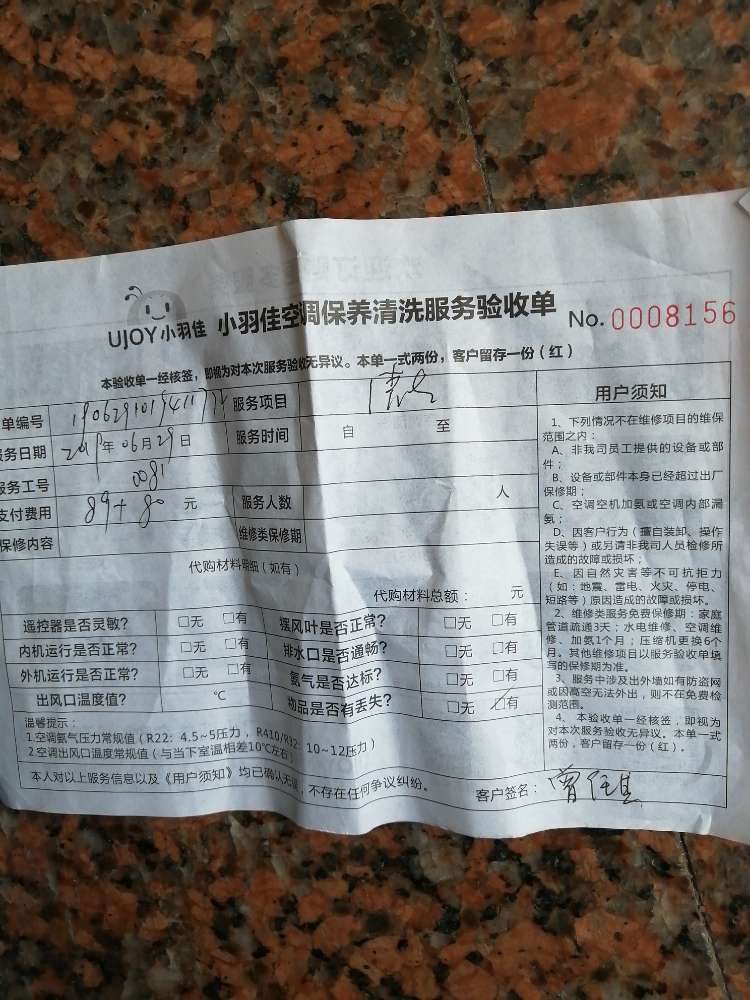 UJOY小羽佳 小羽佳空调保养清洗服务验收单 No. 0008156
本验收单一经核签，即视为对本次服务验收无异议。本单一式两份，客户留存一份（红）
单编号 服务项目 清洗
服务日期 2019年06月29日 服务时间 自 至
服务工号 0081
支付费用 89+80 元 服务人数 人
保修内容 维修类保修期
代购材料明细（如有）
代购材料总额： 元
遥控器是否灵敏？ □无 □有 摆风叶是否正常？ □无 □有
内机运行是否正常？ □无 □有 排水口是否通畅？ □无 □有
外机运行是否正常？ □无 □有 氨气是否达标？ □无 □有
出风口温度值？ ℃ 物品是否有丢失？ □无 □有
温馨提示：
1.空调氨气压力常规值（R22：4.5~5压力，R410/R32：10~12压力）
2.空调出风口温度常规值（与当下室温相差10℃左右）
本人对以上服务信息以及《用户须知》均已确认无误，不存在任何争议纠纷。 客户签名：
用户须知
1、下列情况不在维修项目的维保
范围之内：
A、非我司员工提供的设备或部
件；
B、设备或部件本身已经超过出厂
保修期；
C、空调空机加氨或空调内部漏
氨；
D、因客户行为（擅自装卸、操作
失误等）或另请非我司人员检修所
造成的故障或损坏；
E、因自然灾害等不可抗拒力
（如：地震、雷电、火灾、停电、
短路等）原因造成的故障或损坏。
2、维修类服务免费保修期：家庭
管道疏通3天；水电维修、空调维
修、加氨1个月；压缩机更换6个
月。其他维修项目以服务验收单填
写的保修期为准。
3、服务中涉及出外墙如有防盗网
或因高空无法外出，则不在免费检
测范围。
4、本验收单一经核签，即视为
对本次服务验收无异议。本单一式
两份，客户留存一份（红）。